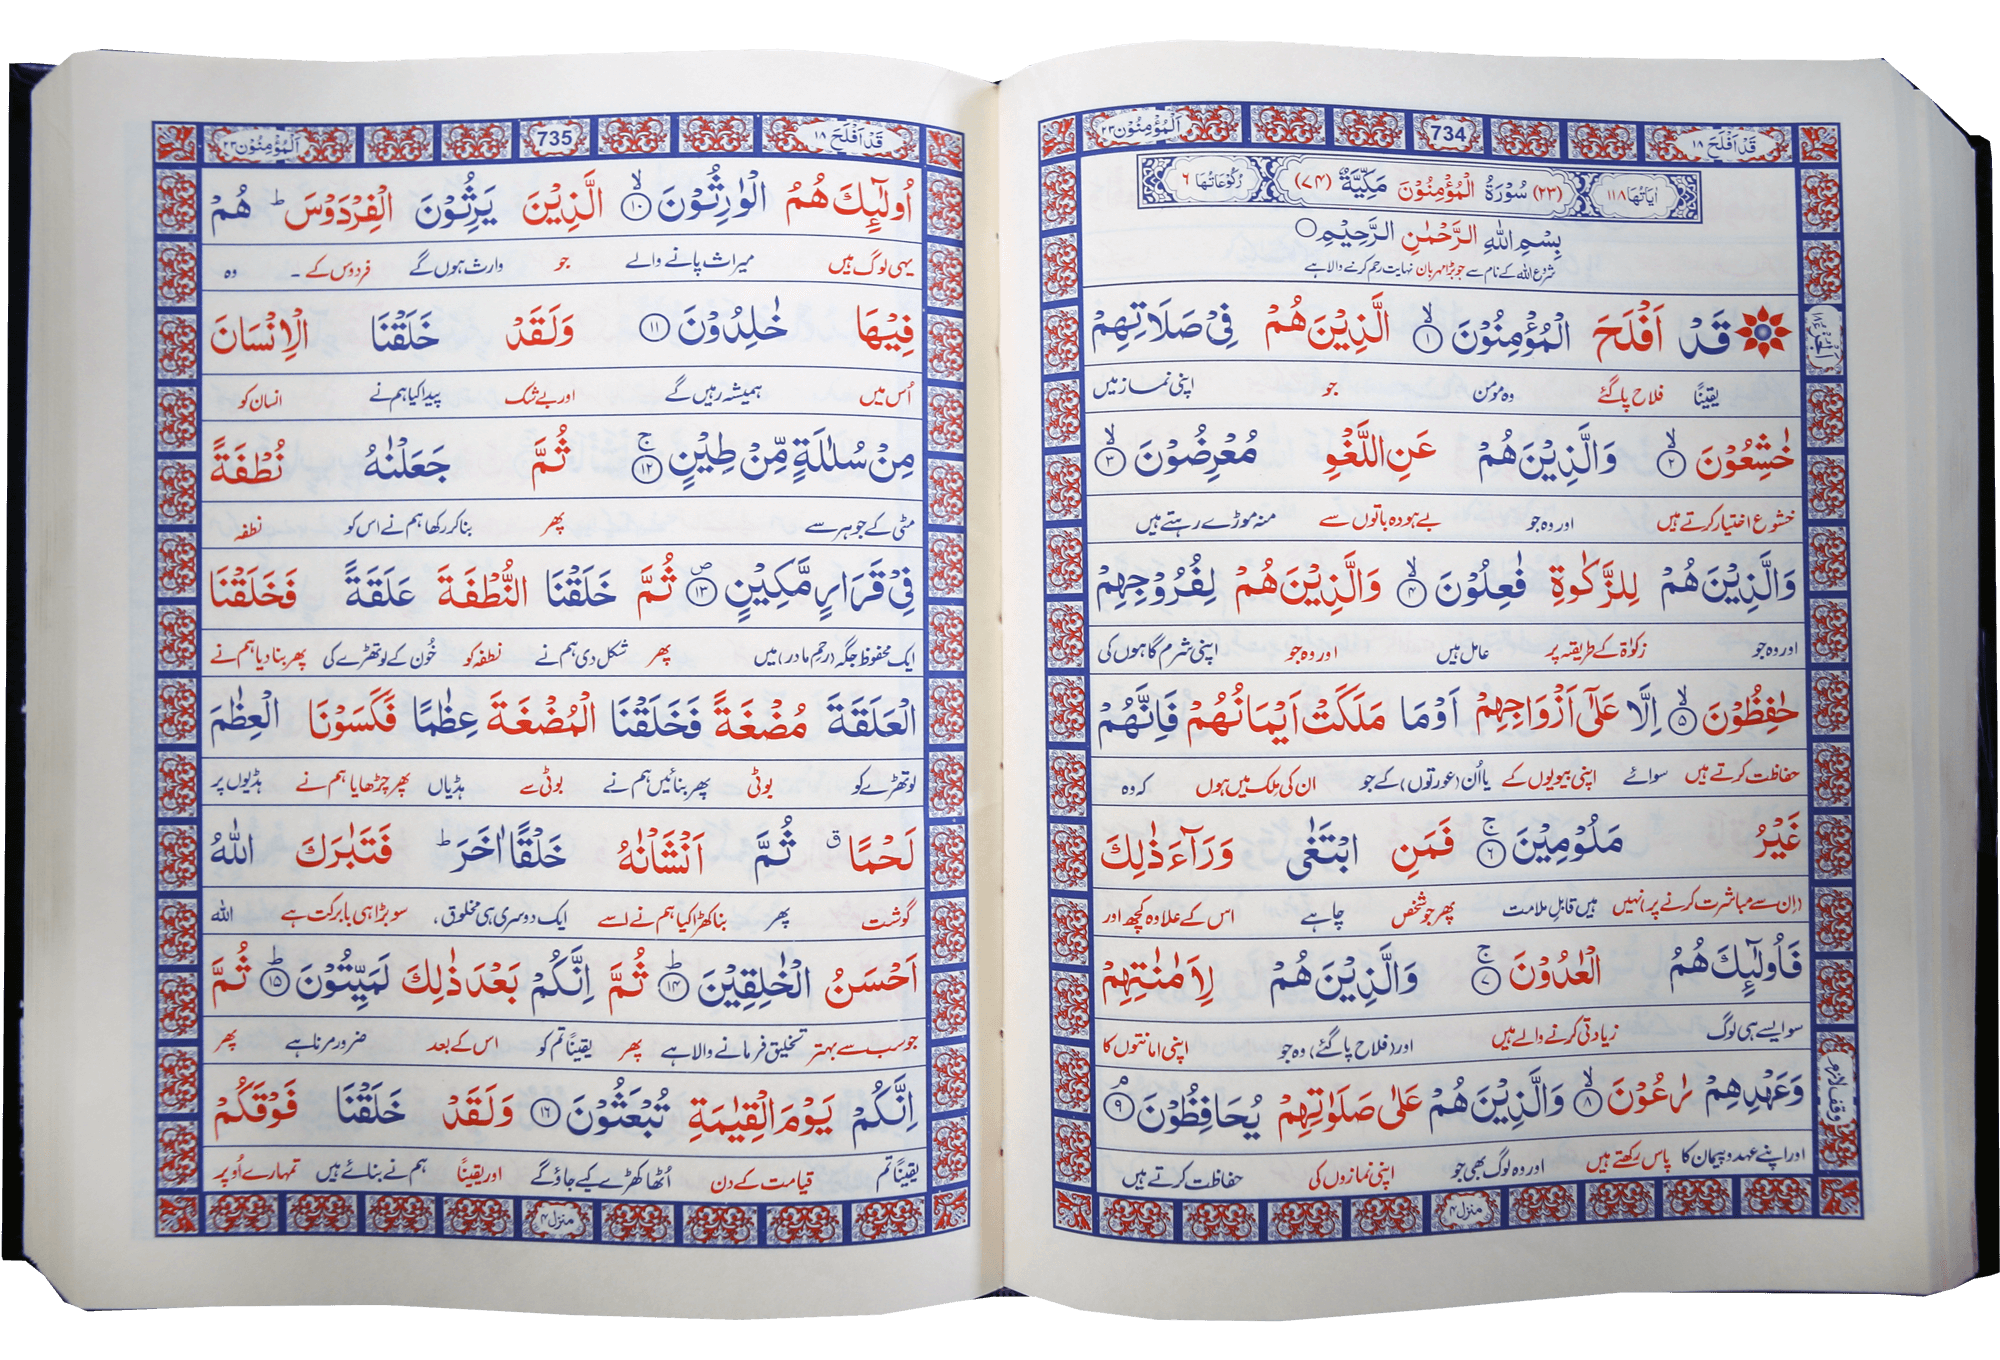 قَدْ اَفْلَحَ ١٨
734
اَلْمُؤْمِنُوْن ٢٣
اٰيَاتُهَا ١١٨
(٢٣) سُوْرَةُ الْمُؤْمِنُوْنَ مَكِّيَّةٌ (٧٤)
رُكُوْعَاتُهَا ٦
بِسْمِ اللّٰهِ الرَّحْمٰنِ الرَّحِيْمِ
شروع اللہ کے نام سے جو بڑا مہربان نہایت رحم کرنے والا ہے
قَدْ اَفْلَحَ الْمُؤْمِنُوْنَ ۙ﴿١﴾ الَّذِيْنَ هُمْ فِيْ صَلَاتِهِمْ
یقیناً فلاح پا گئے وہ مومن جو اپنی نماز میں
خٰشِعُوْنَ ۙ﴿٢﴾ وَالَّذِيْنَ هُمْ عَنِ اللَّغْوِ مُعْرِضُوْنَ ۙ﴿٣﴾
خشوع اختیار کرتے ہیں اور وہ جو بے ہودہ باتوں سے منہ موڑے رہتے ہیں
وَالَّذِيْنَ هُمْ لِلزَّكٰوةِ فٰعِلُوْنَ ۙ﴿٤﴾ وَالَّذِيْنَ هُمْ لِفُرُوْجِهِمْ
اور وہ جو زکوٰۃ کے طریقہ پر عامل ہیں اور وہ جو اپنی شرم گاہوں کی
حٰفِظُوْنَ ۙ﴿٥﴾ اِلَّا عَلٰٓى اَزْوَاجِهِمْ اَوْ مَا مَلَكَتْ اَيْمَانُهُمْ فَاِنَّهُمْ
حفاظت کرتے ہیں سوائے اپنی بیویوں کے یا اُن (عورتوں) کے جو ان کی ملک میں ہوں کہ وہ
غَيْرُ مَلُوْمِيْنَ ۚ﴿٦﴾ فَمَنِ ابْتَغٰى وَرَآءَ ذٰلِكَ
(ان سے مباشرت کرنے پر) نہیں ہیں قابل ملامت پھر جو شخص چاہے اس کے علاوہ کچھ اور
فَاُولٰٓئِكَ هُمُ الْعٰدُوْنَ ۚ﴿٧﴾ وَالَّذِيْنَ هُمْ لِاَمٰنٰتِهِمْ
سو ایسے ہی لوگ زیادتی کرنے والے ہیں اور (فلاح پا گئے) وہ جو اپنی امانتوں کا
وَعَهْدِهِمْ رٰعُوْنَ ۙ﴿٨﴾ وَالَّذِيْنَ هُمْ عَلٰى صَلَوٰتِهِمْ يُحَافِظُوْنَ ۘ﴿٩﴾
اور اپنے عہد و پیمان کا پاس رکھتے ہیں اور وہ لوگ بھی جو اپنی نمازوں کی حفاظت کرتے ہیں
وقف لازم
منزل ٤
قَدْ اَفْلَحَ ١٨
735
اَلْمُؤْمِنُوْن ٢٣
اُولٰٓئِكَ هُمُ الْوٰرِثُوْنَ ۙ﴿١٠﴾ الَّذِيْنَ يَرِثُوْنَ الْفِرْدَوْسَ ؕ هُمْ
یہی لوگ ہیں میراث پانے والے جو وارث ہوں گے فردوس کے ۔ وہ
فِيْهَا خٰلِدُوْنَ ﴿١١﴾ وَلَقَدْ خَلَقْنَا الْاِنْسَانَ
اُس میں ہمیشہ رہیں گے اور بے شک پیدا کیا ہم نے انسان کو
مِنْ سُلٰلَةٍ مِّنْ طِيْنٍ ۚ﴿١٢﴾ ثُمَّ جَعَلْنٰهُ نُطْفَةً
مٹی کے جوہر سے پھر بنا کر رکھا ہم نے اس کو نطفہ
فِيْ قَرَارٍ مَّكِيْنٍ ۪﴿١٣﴾ ثُمَّ خَلَقْنَا النُّطْفَةَ عَلَقَةً فَخَلَقْنَا
ایک محفوظ جگہ (رحم مادر) میں پھر شکل دی ہم نے نطفہ کو خُون کے لوتھڑے کی پھر بنا دیا ہم نے
الْعَلَقَةَ مُضْغَةً فَخَلَقْنَا الْمُضْغَةَ عِظٰمًا فَكَسَوْنَا الْعِظٰمَ
لوتھڑے کو بوٹی پھر بنائیں ہم نے بوٹی سے ہڈیاں پھر چڑھایا ہم نے ہڈیوں پر
لَحْمًا ق ثُمَّ اَنْشَاْنٰهُ خَلْقًا اٰخَرَ ؕ فَتَبٰرَكَ اللّٰهُ
گوشت پھر بنا کھڑا کیا ہم نے اسے ایک دوسری ہی مخلوق، سو بڑا ہی بابرکت ہے اللہ
اَحْسَنُ الْخٰلِقِيْنَ ؕ﴿١٤﴾ ثُمَّ اِنَّكُمْ بَعْدَ ذٰلِكَ لَمَيِّتُوْنَ ؕ﴿١٥﴾ ثُمَّ
جو سب سے بہتر تخلیق فرمانے والا ہے پھر یقیناً تم کو اس کے بعد ضرور مرنا ہے پھر
اِنَّكُمْ يَوْمَ الْقِيٰمَةِ تُبْعَثُوْنَ ﴿١٦﴾ وَلَقَدْ خَلَقْنَا فَوْقَكُمْ
یقیناً تم قیامت کے دن اُٹھا کھڑے کیے جاؤ گے اور یقیناً ہم نے بنائے ہیں تمہارے اُوپر
منزل ٤